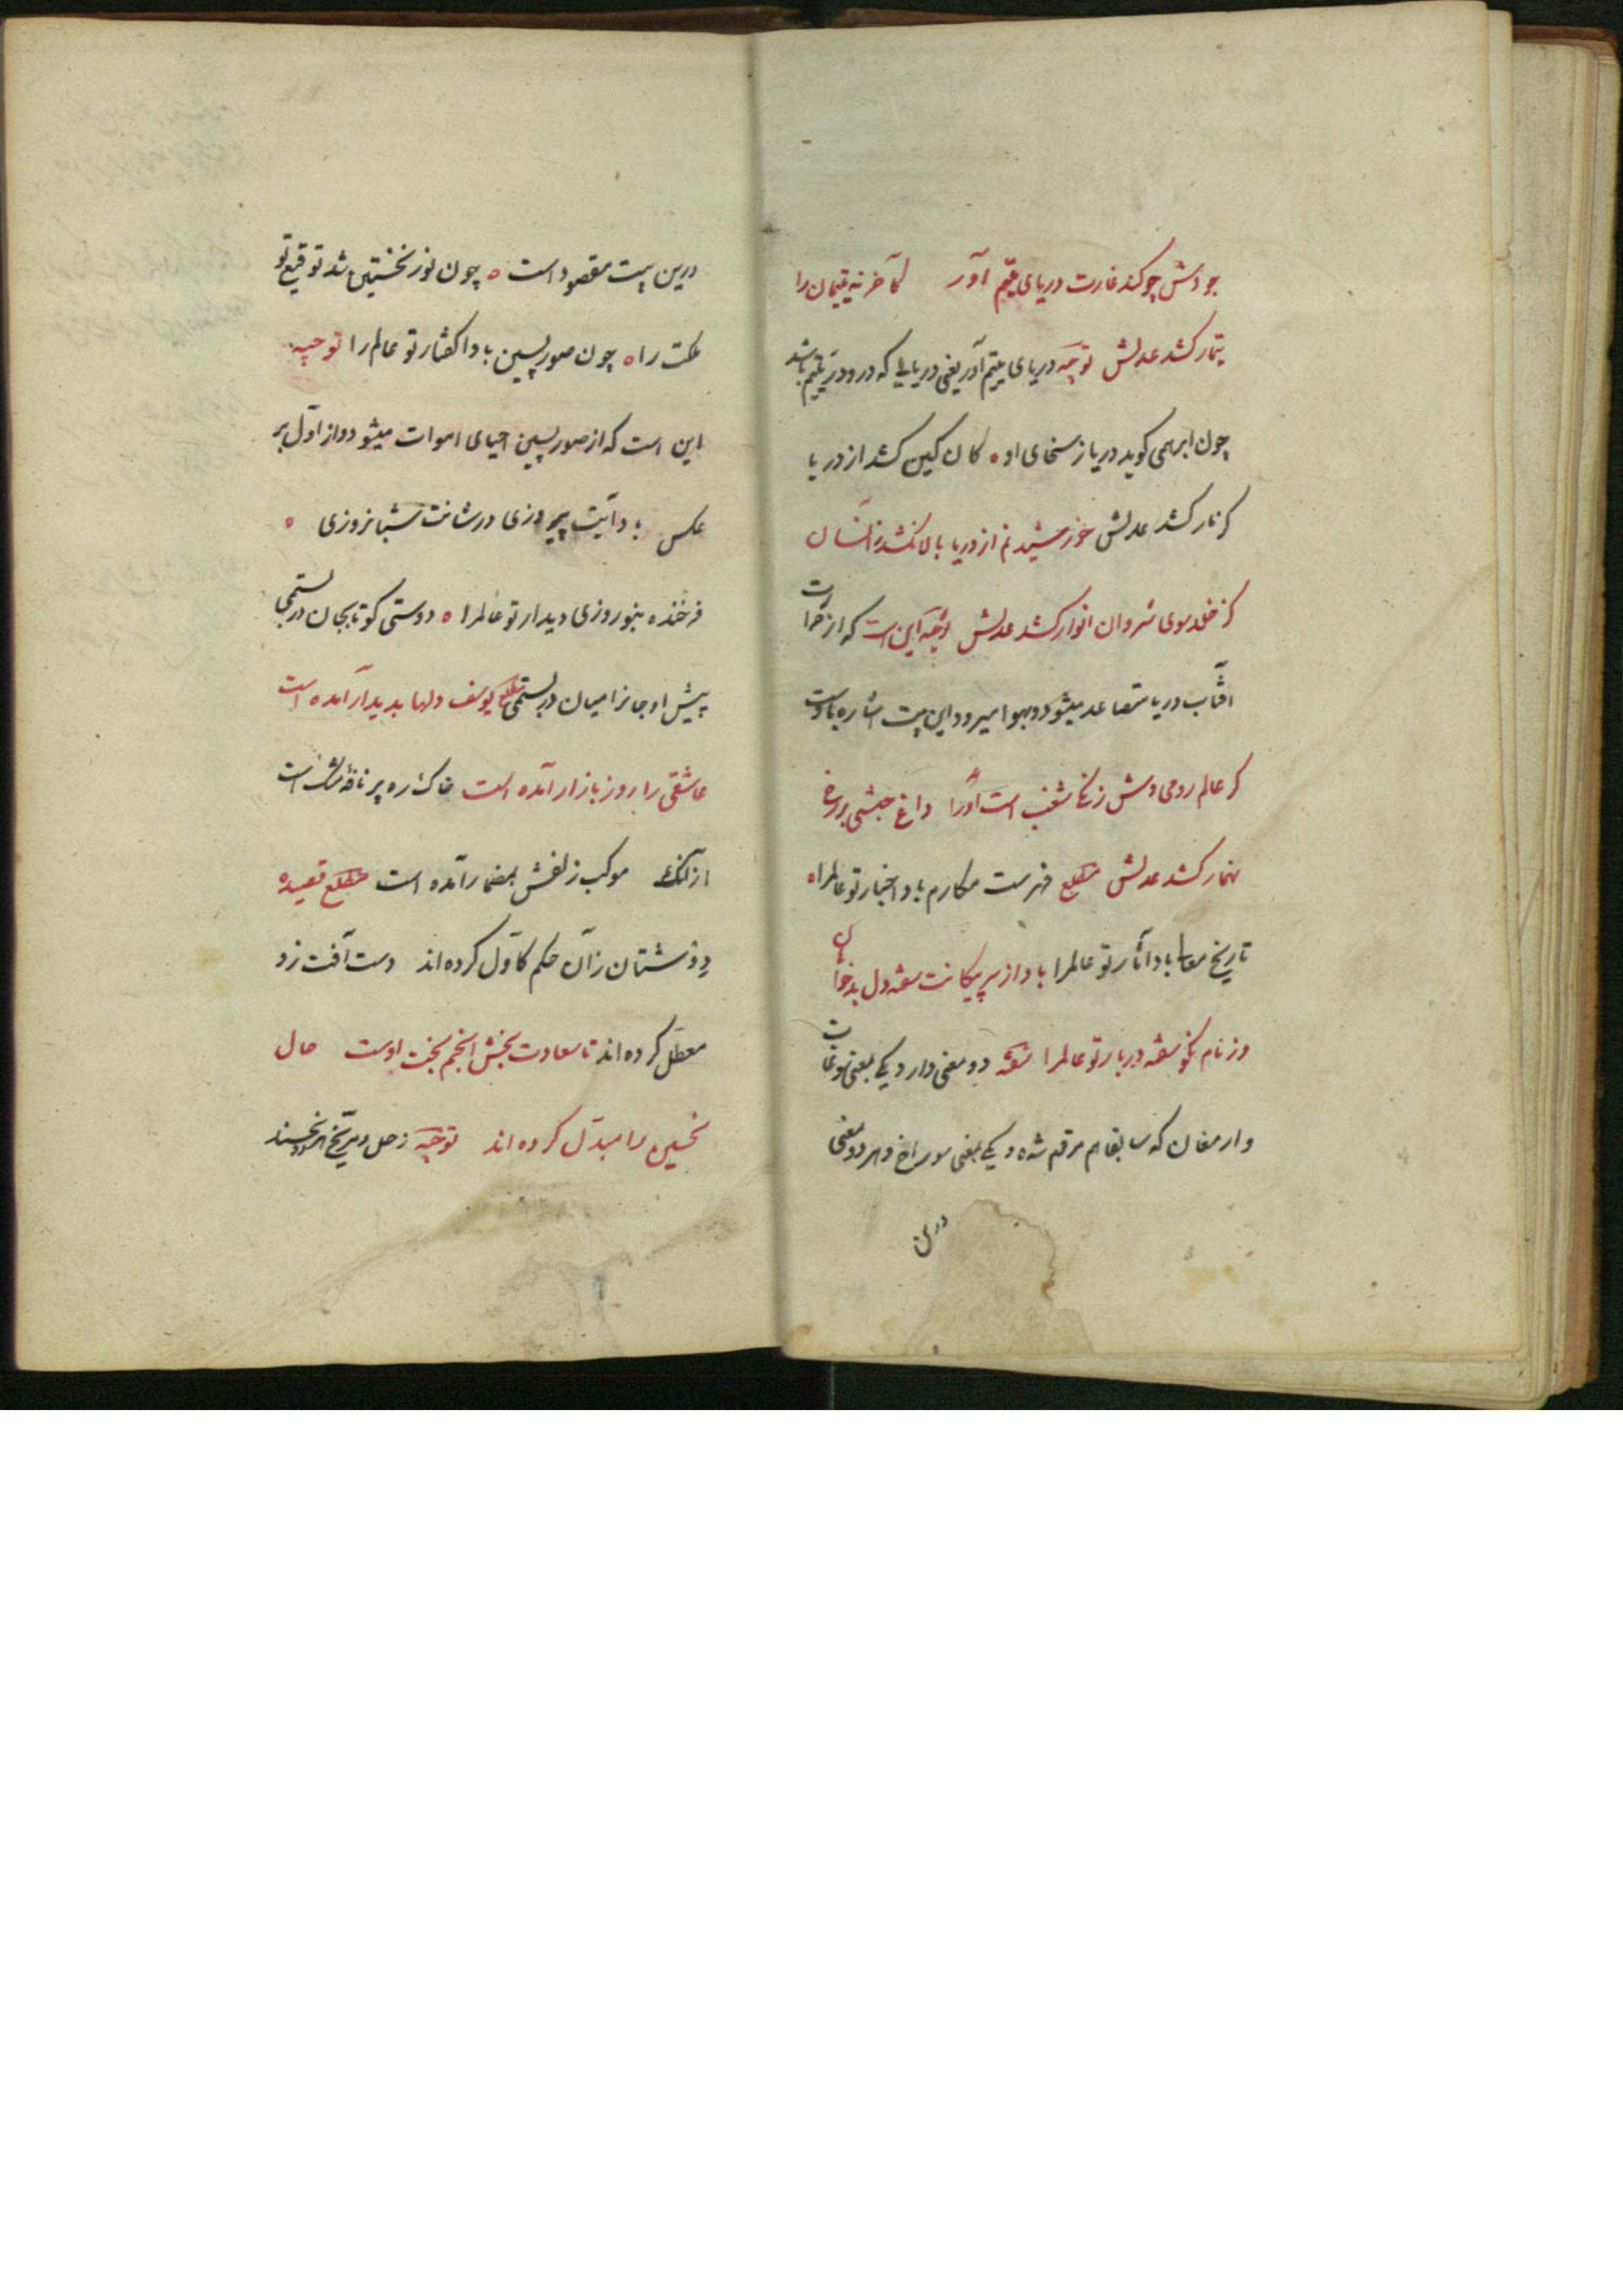 جودش چو کند غارت دریای یتیم آور کآخر نه یتیمان را
تیمار کشد عدلش توجیه دریای یتیم آور یعنی دریایی که درو در یتیم باشد
چون ابر همی کوید دریا ز سخای او ه کان کین کشد از دریا
کر نار کشد عدلش خورشید نم از دریا بالا نکشد زانسان
کز خلد سوی شروان انوار کشد عدلش توجیه این است که از حرارت
آفتاب دریا متصاعد میشود و بهوا میرود این بیت اشاره باوست
کر عالم رومی وش زنگی شغب است او را داغ حبشی بر رخ
نهمار کشد عدلش مطلع فهرست مکارم باد اخبار تو عالم را ه
تاریخ معالی باد آثار تو عالم را باد از سر پیکانت سفته دل بدخواهان
وز نام نکو سفته دربار تو عالم را سفته دو معنی دارد یکی بمعنی سوغات
و ارمغان که سابقا هم مرقوم شده و یکی بمعنی سوراخ و هر دو معنی
درین
درین بیت مقصود است ه چون نور نخستین شد توقیع تو
ملت را ه چون صور پسین باد اکفتار تو عالم را توجیه
این است که از صور پسین احیای اموات میشود و از اول بر
عکس باد آیت پیروزی در شانت شبانروزی ه
فرخنده بنوروزی دیدار تو عالم را ه دوستی کو تا بجان دربستمی
پیش او جانرا میان دربستمی مطلع یوسف دلها پدیدار آمده است
عاشقی را روز بازار آمده است خاک ره پر نافهٔ مشک است
از آنک موکب زلفش بمضمار آمده است مطلع قصیده
در نوشتن زان حکم کاول کرده اند دست آفت زو
معطل کرده اند تا سعادت بخش انجم بخت اوست حال
نحسین را مبدل کرده اند توجیه زحل و مریخ هر دو نحسند